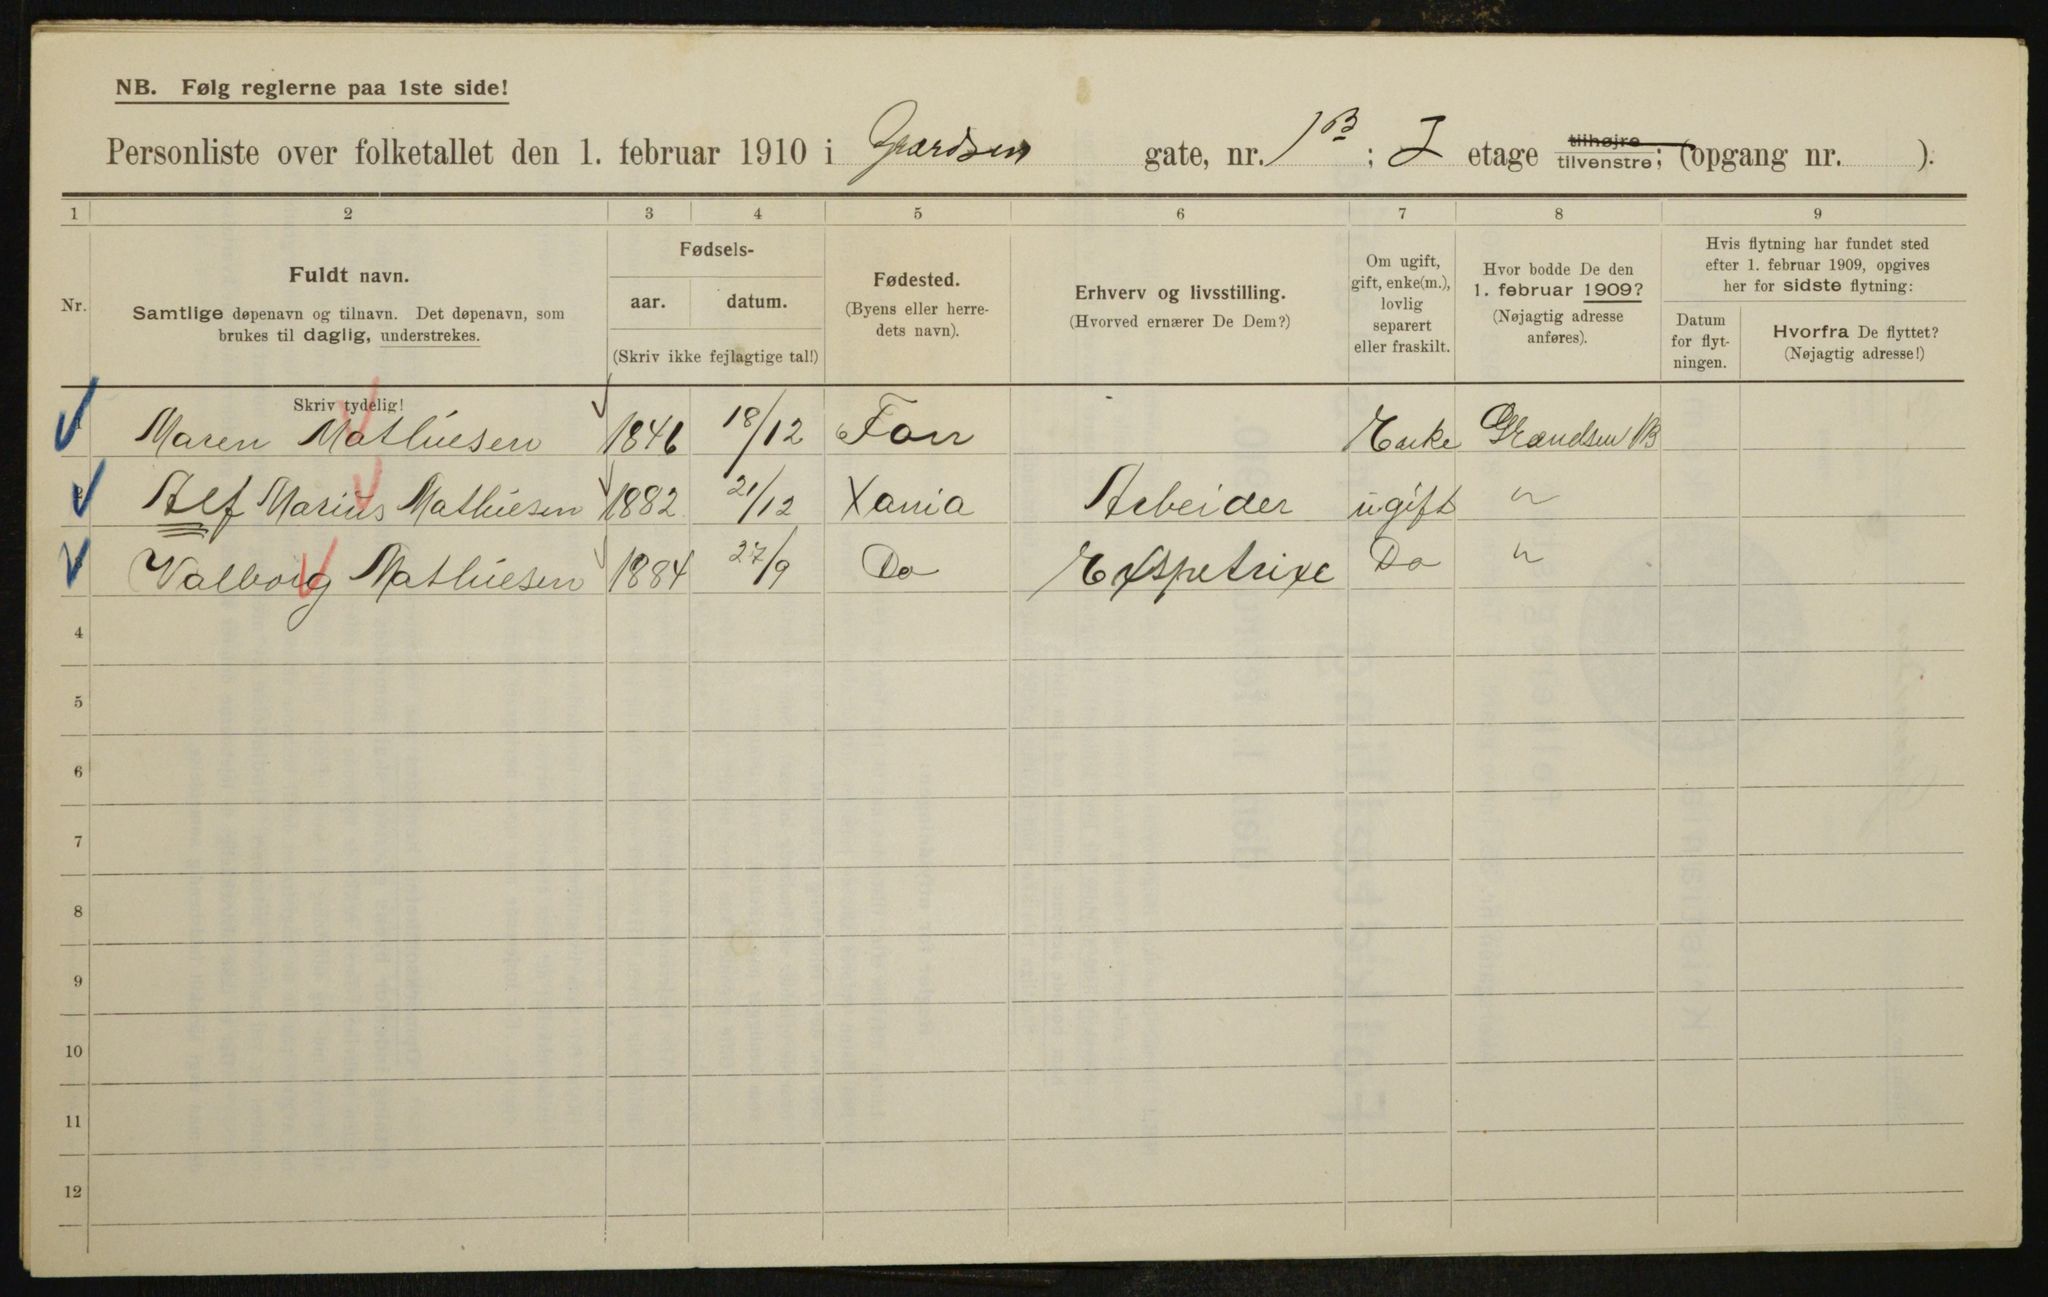 NB. Følg reglerne paa 1ste side!
Personliste over folketallet den 1. februar 1910 i gate, nr. 1B; I etage tilhøjre tilvenstre; (opgang nr. ).
1 2 3 4 5 6 7 8 9
Nr.
Fuldt navn.
Samtlige døpenavn og tilnavn. Det døpenavn, som
brukes til daglig, understrekes.
Fødsels-
aar. datum.
(Skriv ikke fejlagtige tal!)
Fødested.
(Byens eller herre-
dets navn).
Erhverv og livsstilling.
(Hvorved ernærer De Dem?)
Om ugift,
gift, enke(m.),
lovlig
separert
eller fraskilt.
Hvor bodde De den
1. februar 1909?
(Nøjagtig adresse
anføres).
Hvis flytning har fundet sted
efter 1. februar 1909, opgives
her for sidste flytning:
Datum
for flyt-
ningen.
Hvorfra De flyttet?
(Nøjagtig adresse!)
Skriv tydelig!
1 Maren Mathiesen 1846 18/12 Enke 1B
2 Alf Marius Mathiesen 1882 21/12 Xania Arbeider ugift "
3 Valborg Mathiesen 1884 27/9 Do Do "
4
5
6
7
8
9
10
11
12